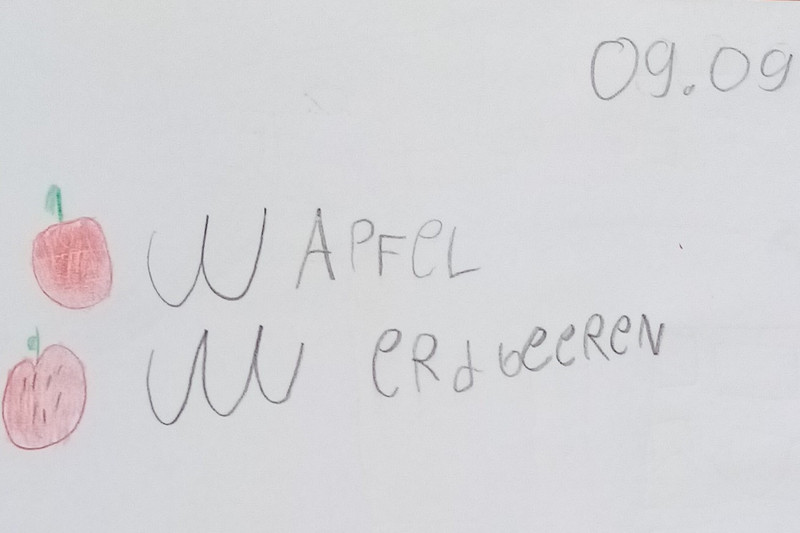 09.09
W APFeL
W eRdbeeReN